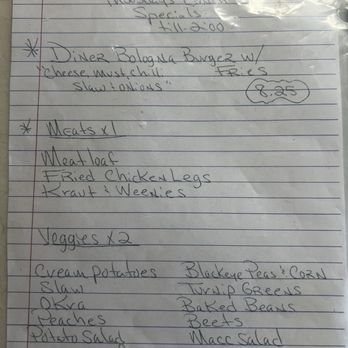 Thursdays Lunch
Specials
till-2:00
* Diner Bologna Burger w/
"cheese, must, chili Fries
Slaw & onions" 8.25
* Meats x1
Meatloaf
Fried Chicken Legs
Kraut & Weenies
Veggies x2
Cream potatoes Blackeye Peas & Corn
Slaw Turnip Greens
Okra Baked Beans
Peaches Beets
Potato Salad Macc Salad